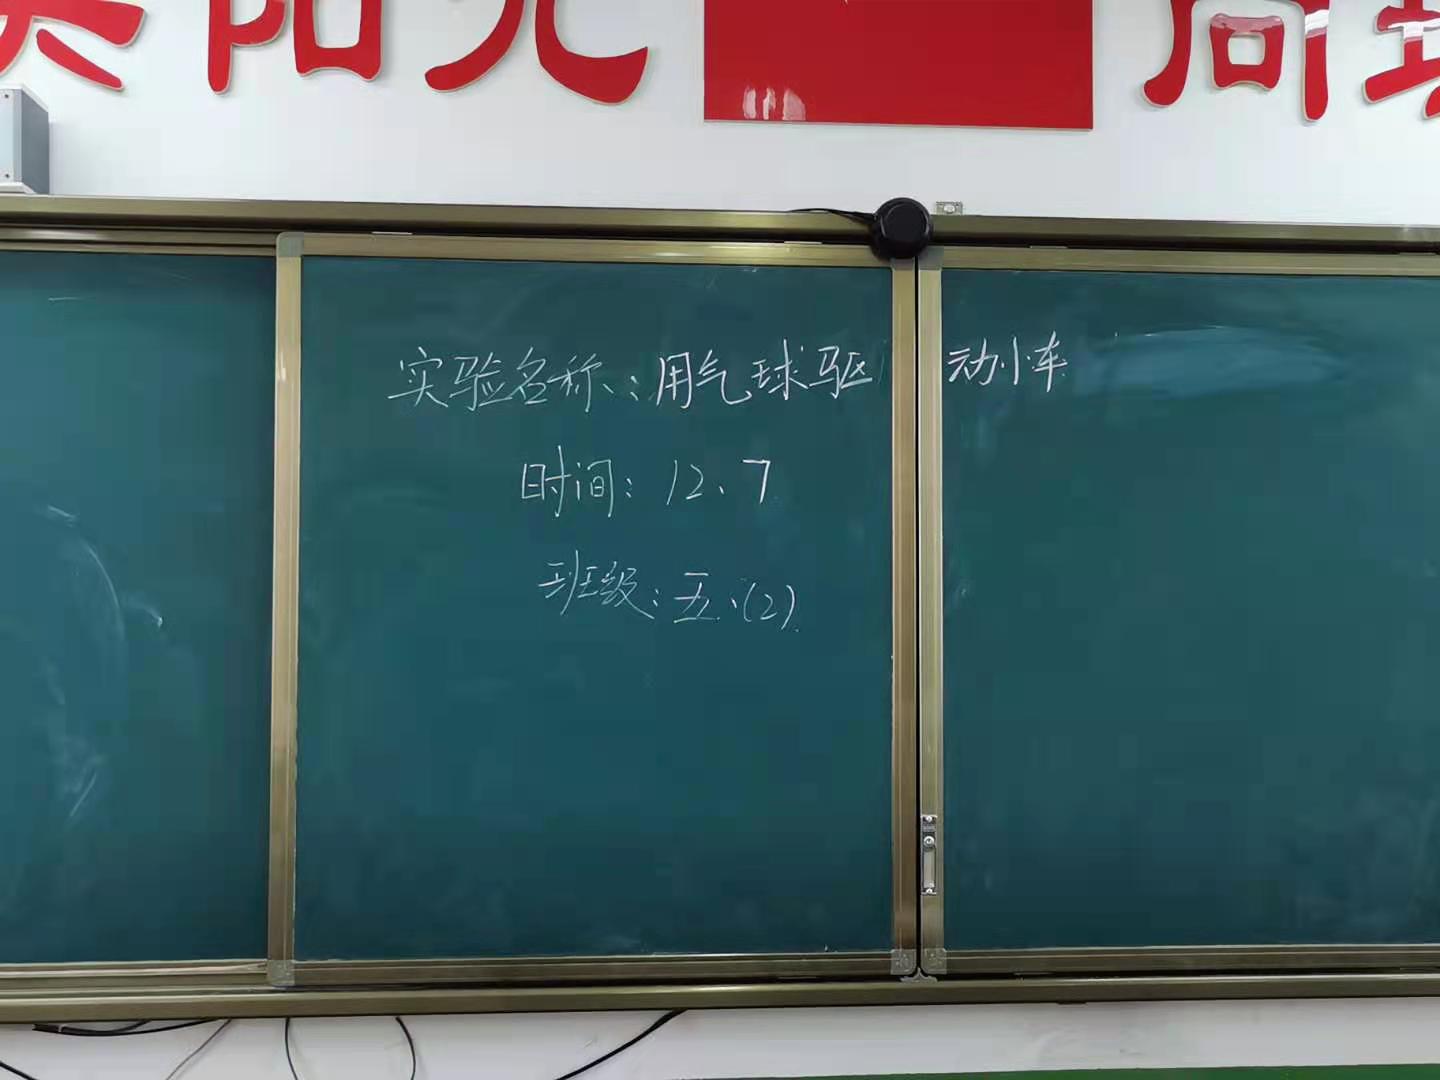 阳光
实验名称:用气球驱动小车
时间:12、7
班级:五、(2)